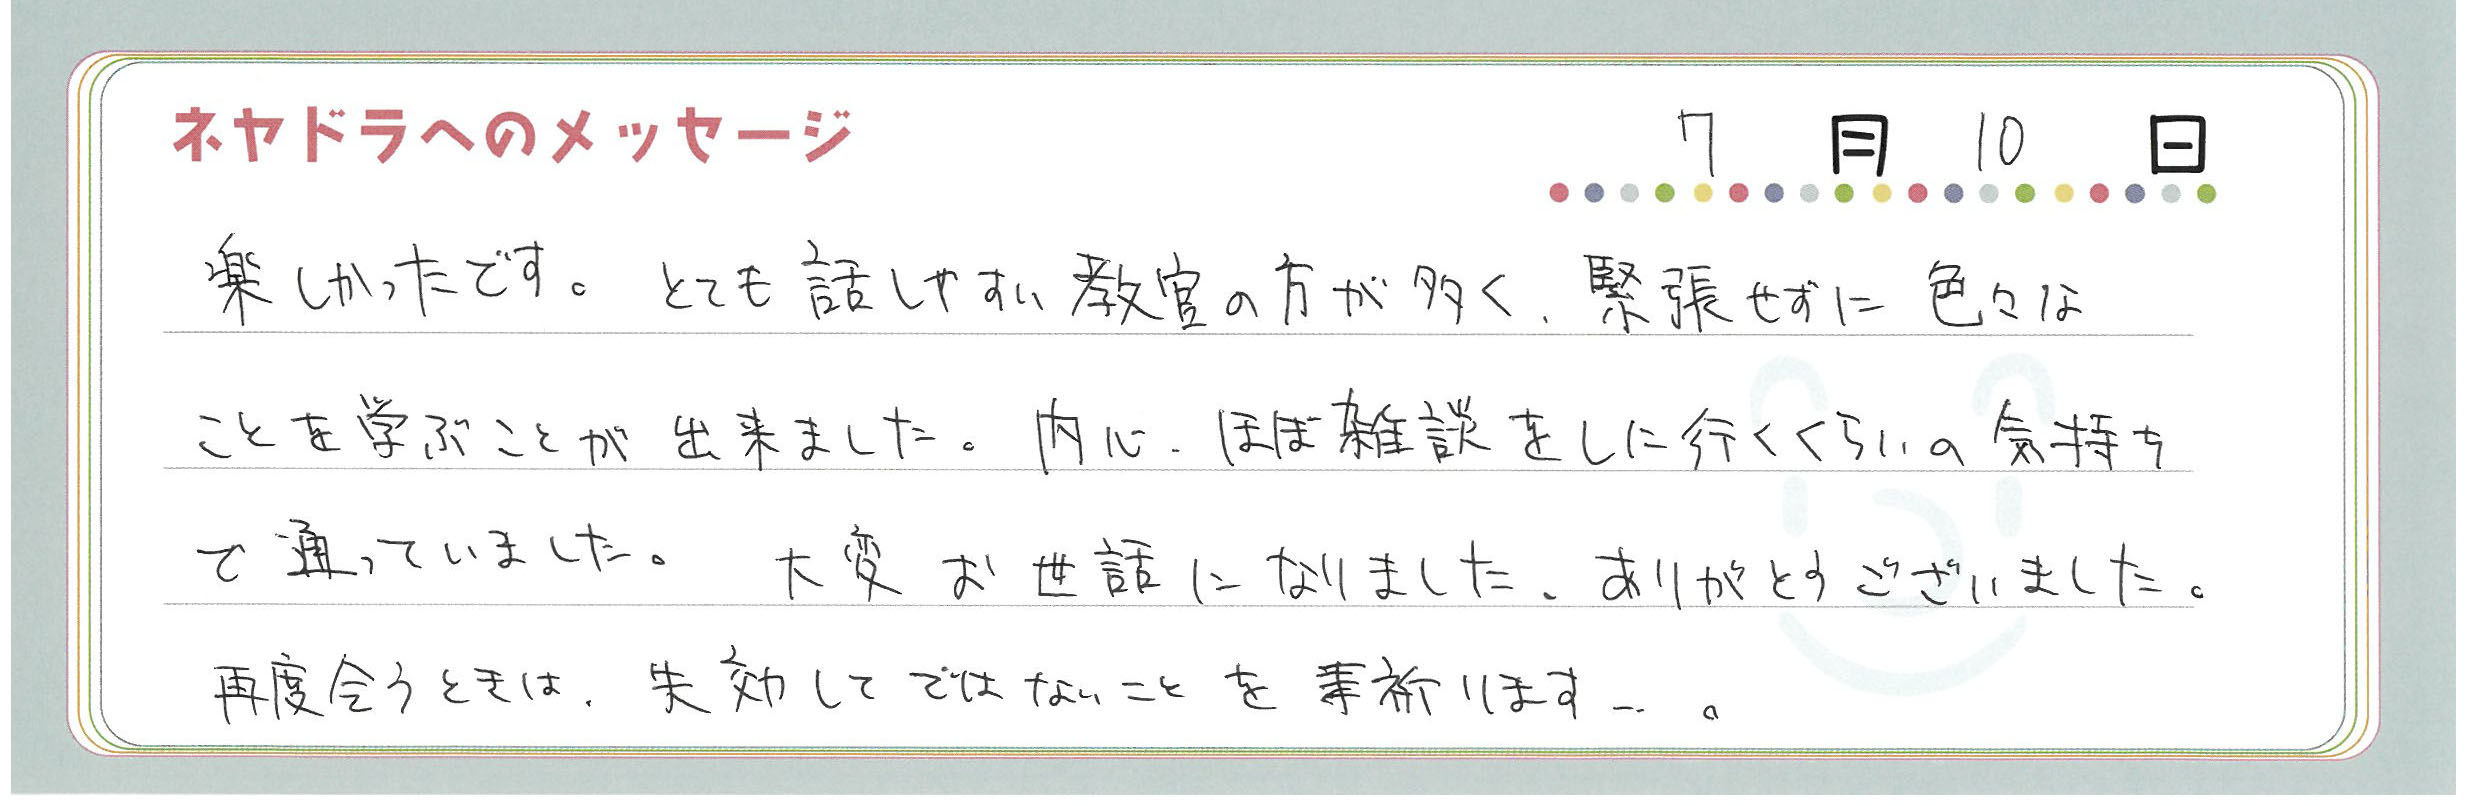 ネヤドラへのメッセージ
7月10日
楽しかったです。とても話しやすい教官の方が多く、緊張せずに色々な
ことを学ぶことが出来ました。内心、ほぼ雑談をしに行くくらいの気持ち
で通っていました。大変お世話になりました。ありがとうございました。
再度会うときは、失効してではないことを祈ります…。